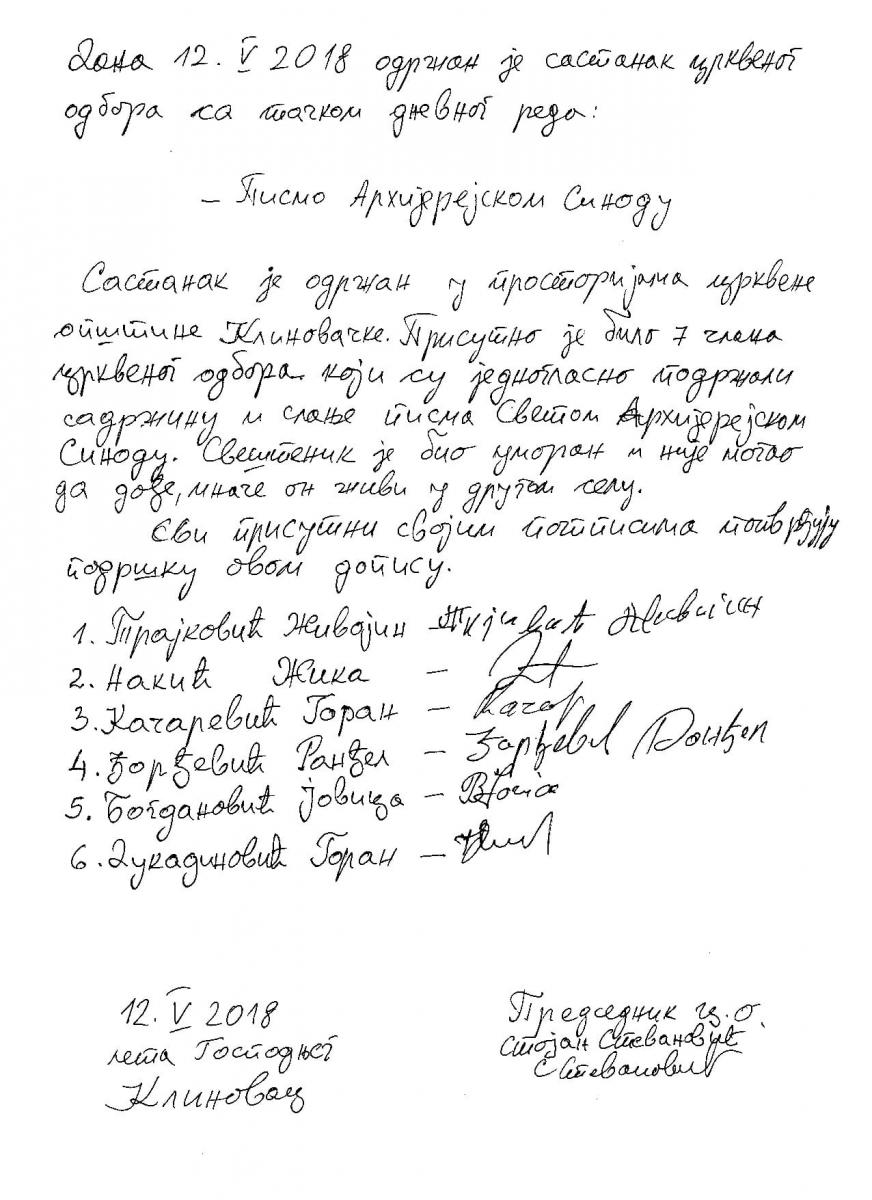 Дана 12. V 2018 одржан је састанак црквеног
одбора са тачком дневног реда:
– Писмо Архијерејском Синоду
Састанак је одржан у просторијама црквене
општине Клиновачке. Присутно је било 7 члана
црквеног одбора који су једногласно подржали
садржину и слање писма Светом Архијерејском
Синоду. Свештеник је био уморан и није могао
да дође, иначе он живи у другом селу.
Сви присутни својим потписима потврђују
подршку овом допису.
1. Трајковић Живојин –
2. Накић Жика –
3. Качаревић Горан –
4. Ђорђевић Ранђел – Ђорђевић Ранђел
5. Богдановић Јовица –
6. Вукадиновић Горан –
12. V 2018
лета Господњег
Клиновац
Председник ц.о.
Стојан Стевановић
С Стевановић